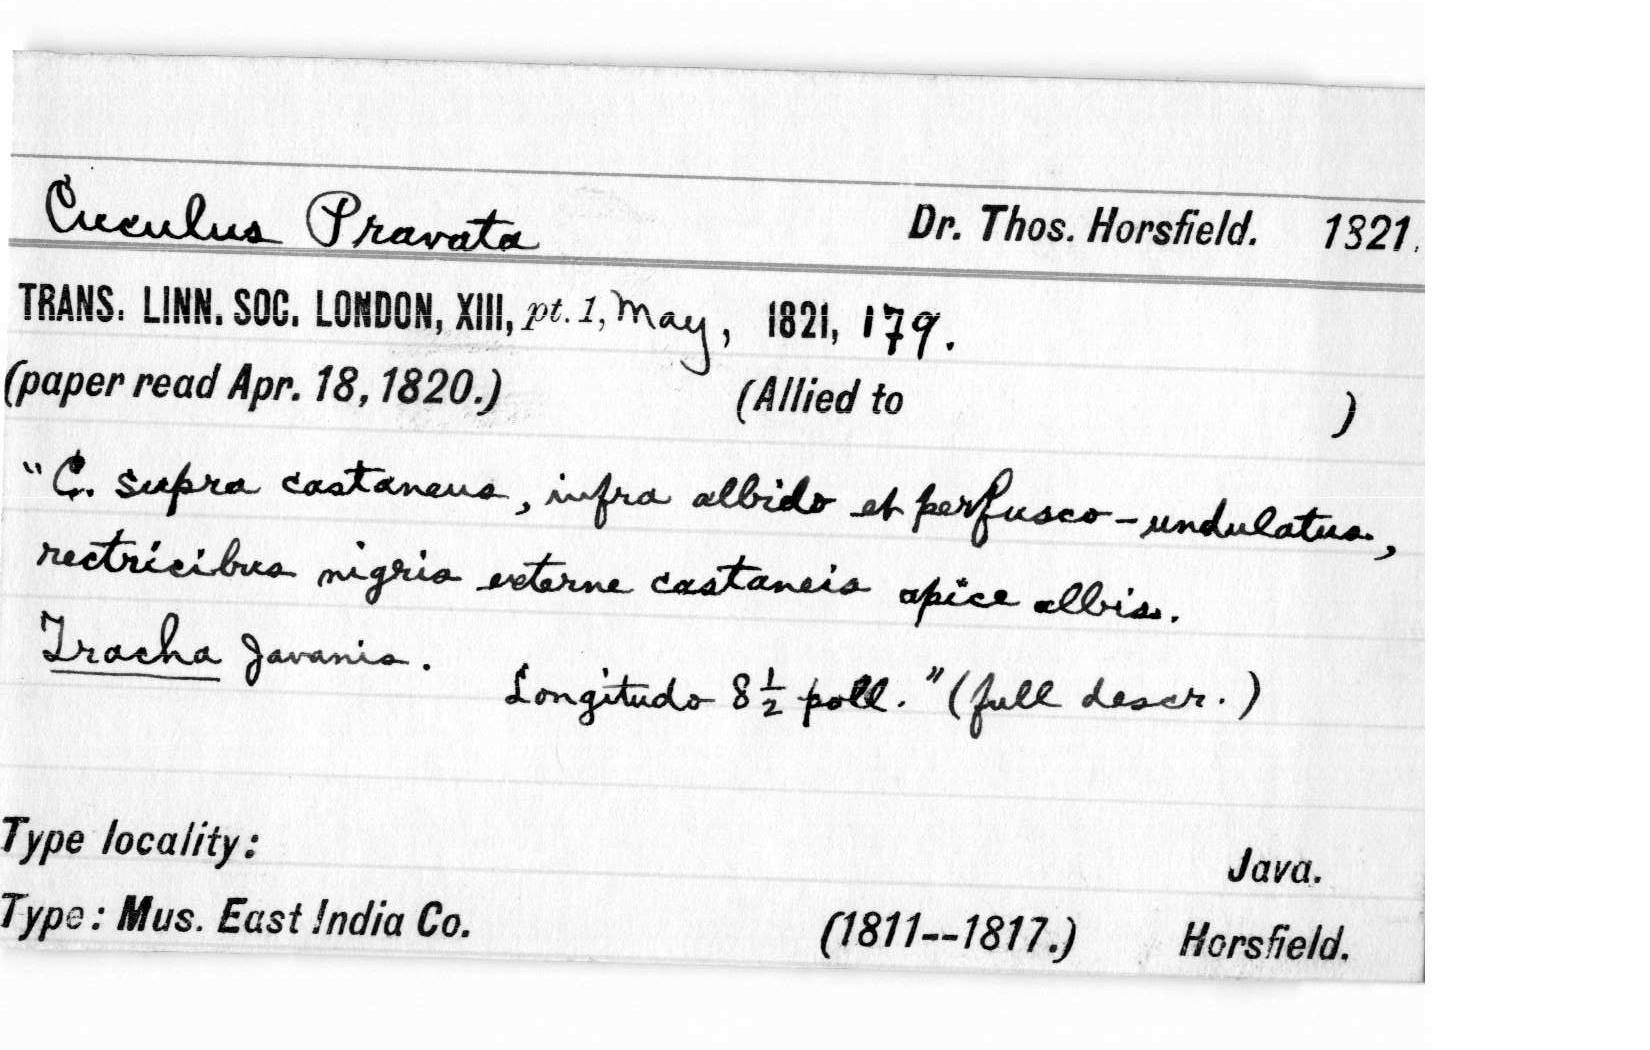 Cuculus Pravata Dr. Thos. Horsfield. 1821.
TRANS. LINN. SOC. LONDON, XIII, pt. 1, May, 1821, 179.
(paper read Apr. 18, 1820.) (Allied to )
"C. supra castaneus, infra albido et perfusco-undulatus,
rectricibus nigris externe castaneis apice albis.
Tracha Javanis.
Longitudo 8 1/2 poll." (full descr.)
Type locality: Java.
Type: Mus. East India Co. (1811--1817.) Horsfield.